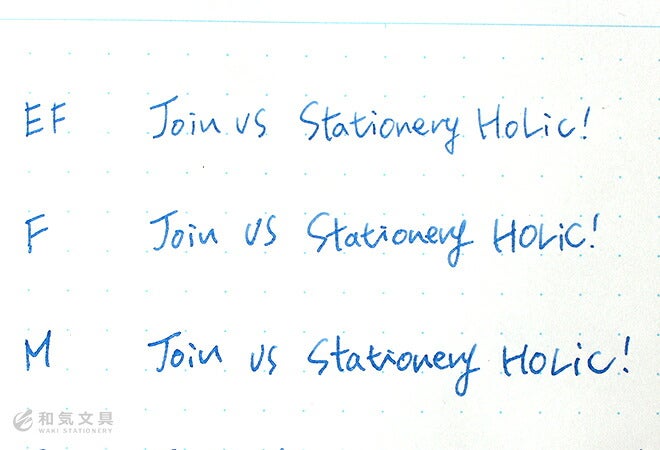 EF Join us Stationery Holic!
F Join us Stationery Holic!
M Join us Stationery Holic!
和気文具
WAKI STATIONERY